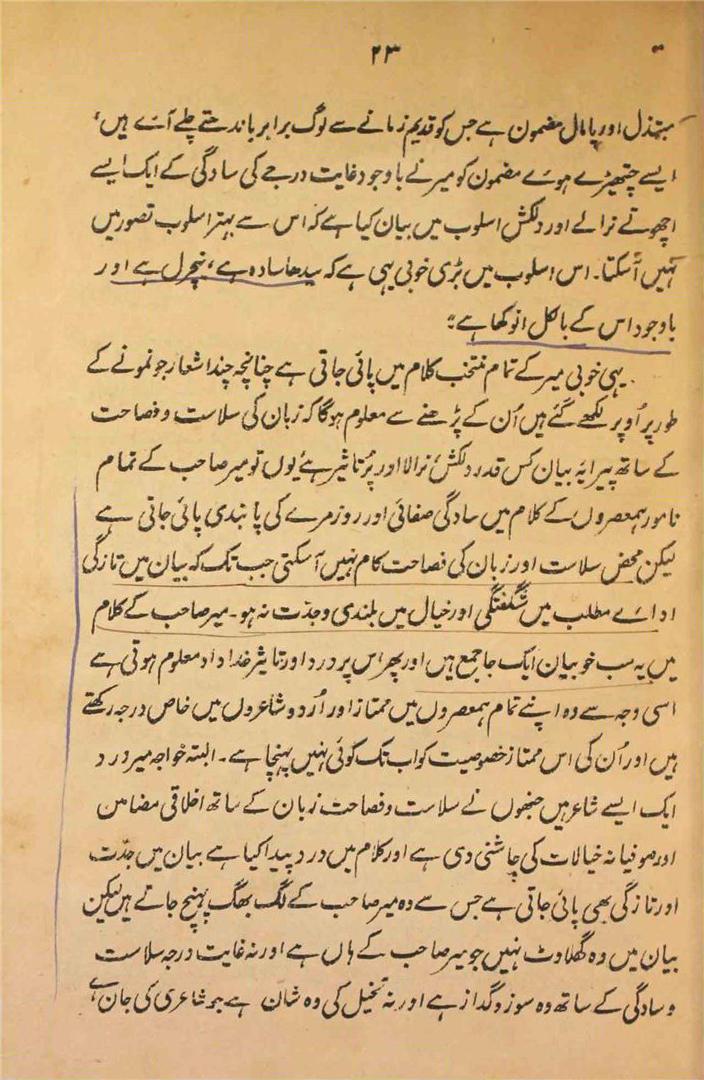 ۲۳
مبتذل اور پامال مضمون ہے جس کو قدیم زمانے سے لوگ برابر باندھتے چلے آئے ہیں،
ایسے چتھیڑے ہوئے مضمون کو میر نے باوجود غایت درجے کی سادگی کے ایک ایسے
اچھوتے نرالے اور دلکش اسلوب میں بیان کیا ہے کہ اس سے بہتر اسلوب تصور میں
نہیں آسکتا۔ اس اسلوب میں بڑی خوبی یہی ہے کہ سیدھا سادہ ہے، نیچرل ہے اور
باوجود اس کے بالکل انوکھا ہے"
یہی خوبی میر کے تمام منتخب کلام میں پائی جاتی ہے چنانچہ چند اشعار جو نمونے کے
طور پر اُوپر لکھے گئے ہیں اُن کے پڑھنے سے معلوم ہوگا کہ زبان کی سلاست و فصاحت
کے ساتھ پیرایۂ بیان کس قدر دلکش، نرالا اور پُر تاثیر ہے یوں تو میر صاحب کے تمام
نامور ہمعصروں کے کلام میں سادگی صفائی اور روزمرے کی پابندی پائی جاتی ہے
لیکن محض سلاست اور زبان کی فصاحت کام نہیں آسکتی جب تک کہ بیان میں تازگی
ادائے مطلب میں شگفتگی اور خیال میں بلندی و جدّت نہ ہو۔ میر صاحب کے کلام
میں یہ سب خوبیاں ایک جا جمع ہیں اور پھر اس پر درد اور تاثیر خداداد معلوم ہوتی ہے
اسی وجہ سے وہ اپنے تمام ہمعصروں میں ممتاز اور اُردو شاعروں میں خاص درجہ رکھتے
ہیں اور اُن کی اس ممتاز خصوصیت کو اب تک کوئی نہیں پہنچا ہے۔ البتہ خواجہ میر درد
ایک ایسے شاعر ہیں جنھوں نے سلاست و فصاحت زبان کے ساتھ اخلاقی مضامن
اور صوفیانہ خیالات کی چاشنی دی ہے اور کلام میں درد پیدا کیا ہے بیان میں جدّت
اور تازگی بھی پائی جاتی ہے جس سے وہ میر صاحب کے لگ بھگ پہنچ جاتے ہیں لیکن
بیان میں وہ گھلاوٹ نہیں جو میر صاحب کے ہاں ہے اور نہ غایت درجہ سلاست
و سادگی کے ساتھ وہ سوز و گداز ہے اور نہ تخیل کی وہ شان ہے جو شاعری کی جان ہے